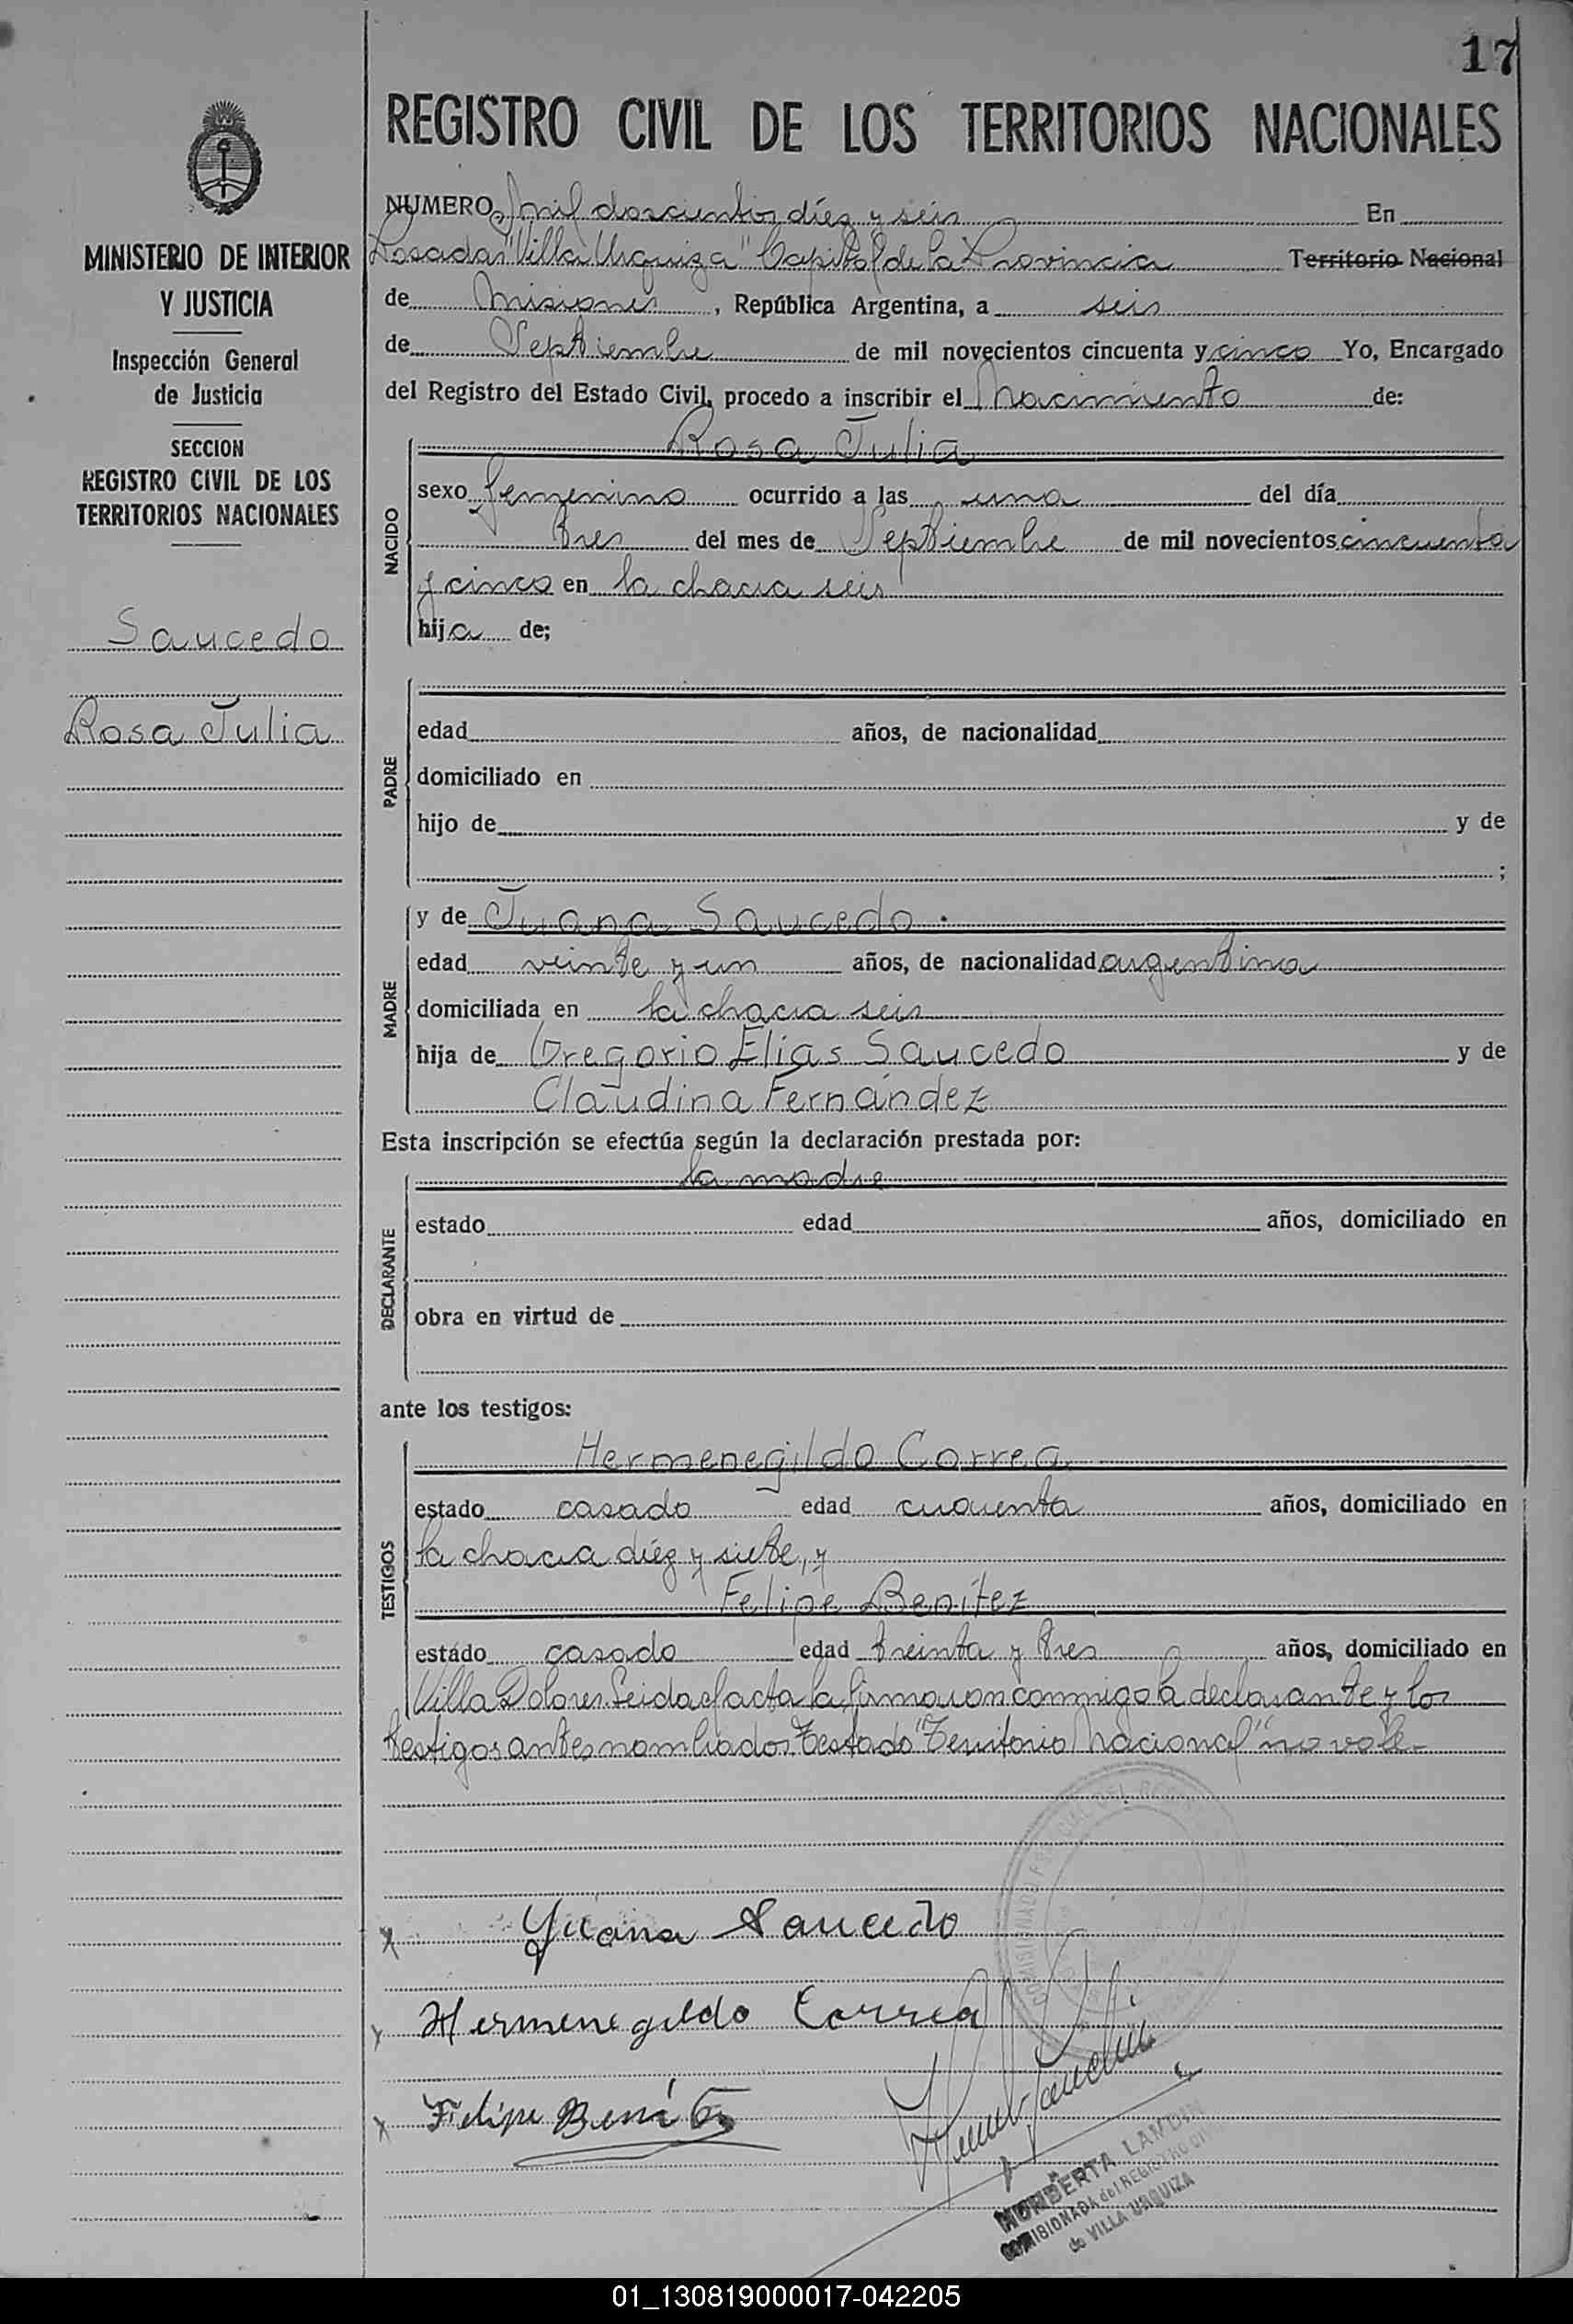 17
REGISTRO CIVIL DE LOS TERRITORIOS NACIONALES
MINISTERIO DE INTERIOR
Y JUSTICIA
Inspección General
de Justicia
SECCION
REGISTRO CIVIL DE LOS
TERRITORIOS NACIONALES
Saucedo
Rosa Julia
NUMERO mil doscientos diez y seis En
Posadas "Villa Urquiza" Capital de la Provincia Territorio Nacional
de Misiones, República Argentina, a seis
de Septiembre de mil novecientos cincuenta y cinco Yo, Encargado
del Registro del Estado Civil, procedo a inscribir el Nacimiento de:
NACIDO
Rosa Julia
sexo femenino ocurrido a las una del día
tres del mes de Septiembre de mil novecientos cincuenta
y cinco en la chacra seis
hija de;
PADRE
edad años, de nacionalidad
domiciliado en
hijo de y de
;
MADRE
y de Juana Saucedo.
edad veinte y un años, de nacionalidad argentina
domiciliada en la chacra seis
hija de Gregorio Elias Saucedo y de
Claudina Fernández
Esta inscripción se efectúa según la declaración prestada por:
DECLARANTE
la madre
estado edad años, domiciliado en
obra en virtud de
ante los testigos:
TESTIGOS
Hermenegildo Correa
estado casado edad cuarenta años, domiciliado en
la chacra diéz y siete, y
Felipe Benítez
estado casado edad treinta y tres años, domiciliado en
Villa Dolores. Leida el acta la firmaron conmigo la declarante y los
testigos antes nombrados. Testado "Territorio Nacional" no vale-
x Juana Saucedo
x Hermenegildo Correa
x Felipe Benítez
NORBERTA
COMISIONADA del REGISTRO
de VILLA URQUIZA
01_130819000017-042205